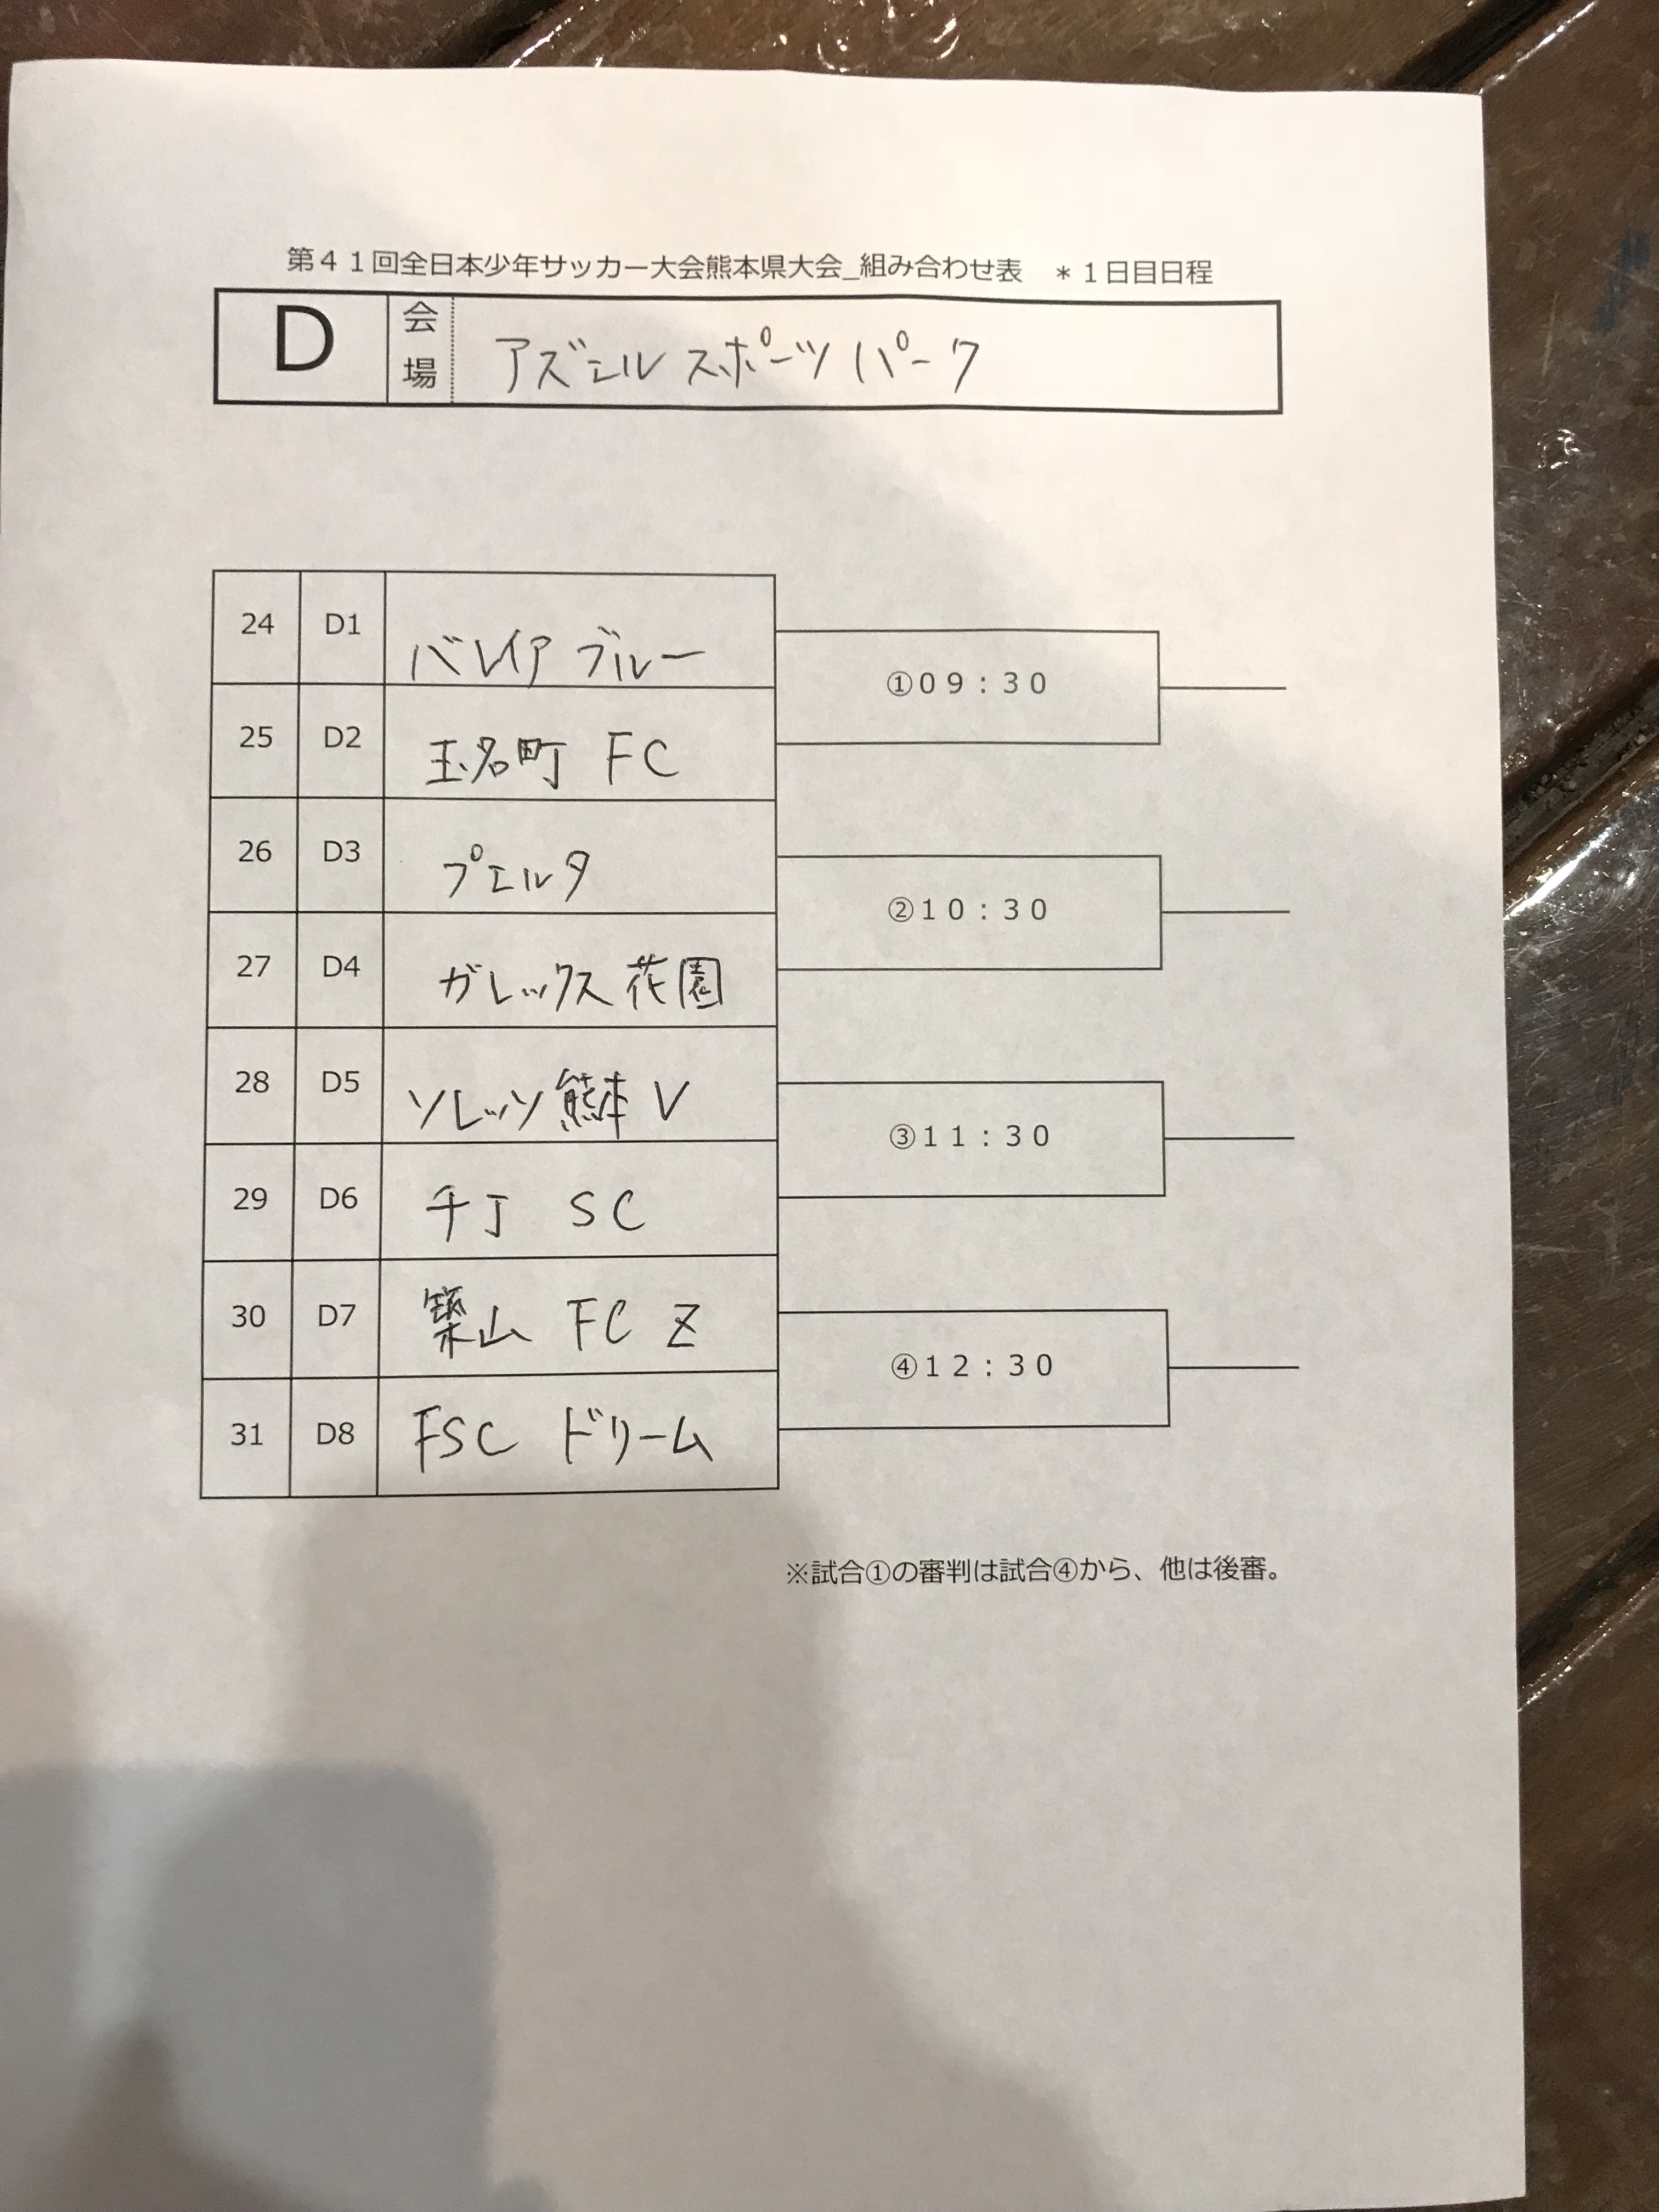 第４１回全日本少年サッカー大会熊本県大会_組み合わせ表　＊１日目日程
D 会場 アズエル スポーツ パーク
24 D1 バレイア ブルー
①０９：３０
25 D2 玉名町 FC
26 D3 プエルタ
②１０：３０
27 D4 ガレックス 花園
28 D5 ソレッソ 熊本 V
③１１：３０
29 D6 千丁 SC
30 D7 築山 FC Z
④１２：３０
31 D8 FSC ドリーム
※試合①の審判は試合④から、他は後審。